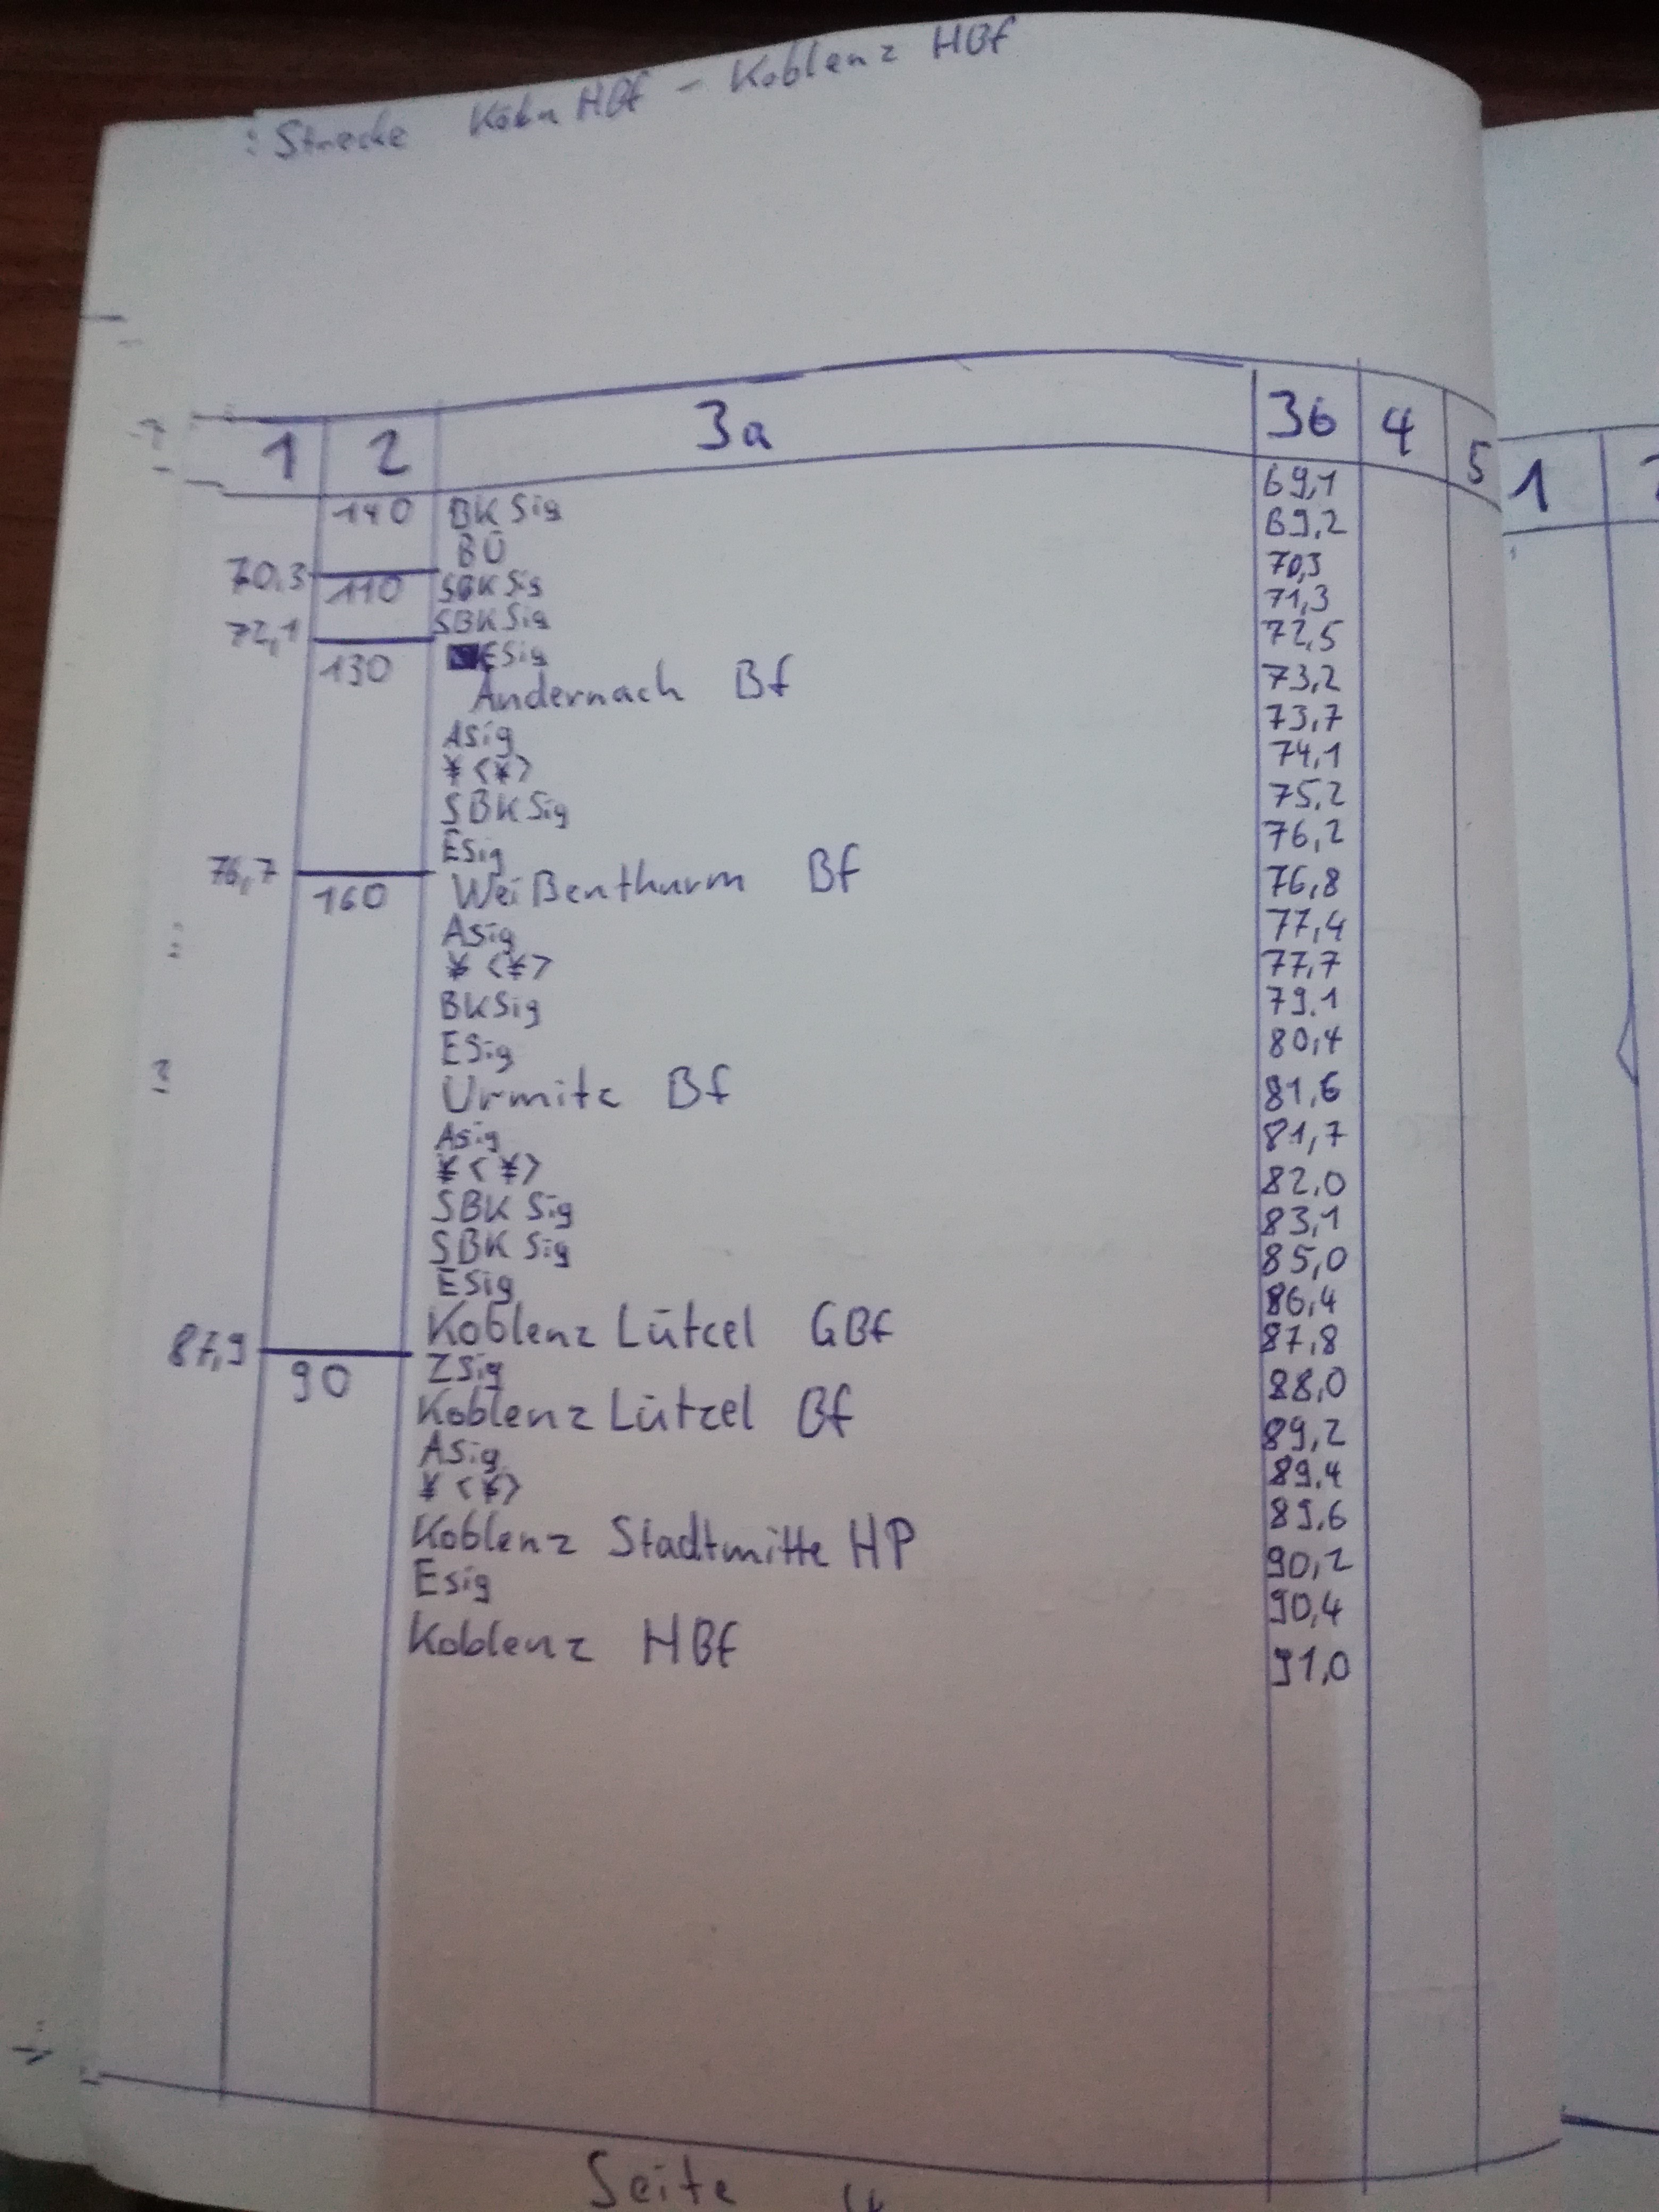 : Strecke Köln HBf - Koblenz HBf
1 2 3a 3b 4 5
140 BK Sig 69,1
BÜ 69,2
70,3 110 SBK Sig 70,3
SBK Sig 71,3
72,1 130 ESig 72,5
Andernach Bf 73,2
Asig 73,7
¥ <¥> 74,1
SBK Sig 75,2
ESig 76,2
76,7 160 Weißenthurm Bf 76,8
Asig 77,4
¥ <¥> 77,7
BKSig 79.1
ESig 80,4
Urmitz Bf 81,6
Asig 81,7
¥ <¥> 82,0
SBK Sig 83,1
SBK Sig 85,0
ESig 86,4
Koblenz Lützel GBf 87,8
87,9 90 ZSig 88,0
Koblenz Lützel Bf 89,2
ASig 89.4
¥ <¥> 89,6
Koblenz Stadtmitte HP 90,2
Esig 90,4
Koblenz HBf 91,0
Seite 4
1